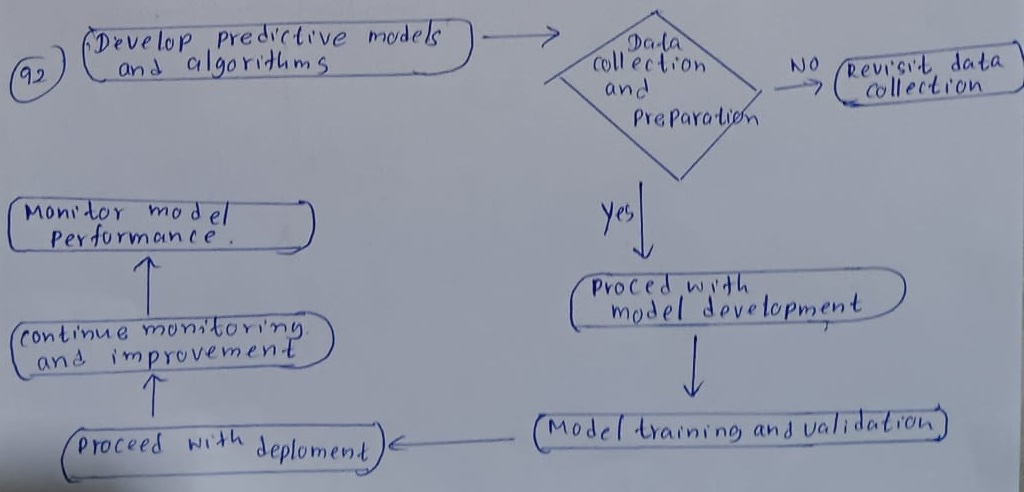 92
Develop predictive models
and algorithms
Data
collection
and
preparation
NO
Revisit data
collection
Yes
proced with
model development
Model training and validation
proceed with deploment
continue monitoring
and improvement
Monitor model
performance.